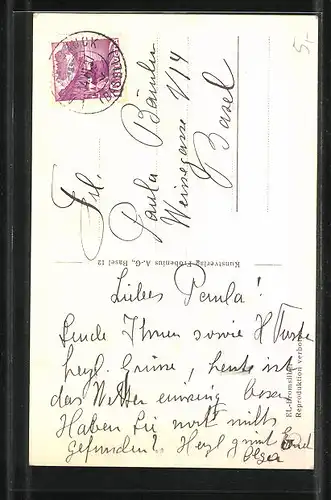 5.-
Frl.
Paula Bäumlin
Weinsgasse 1/14
Basel
Kunstverlag Frobenius A.-G., Basel 12
Liebes Paula!
Sende Ihnen sowie H
herzl. Grüsse, heute ist
das Wetter einzig
Haben Sie noch nichts
gefunden? Herzl grüsst
Olga
Reproduktion verboten